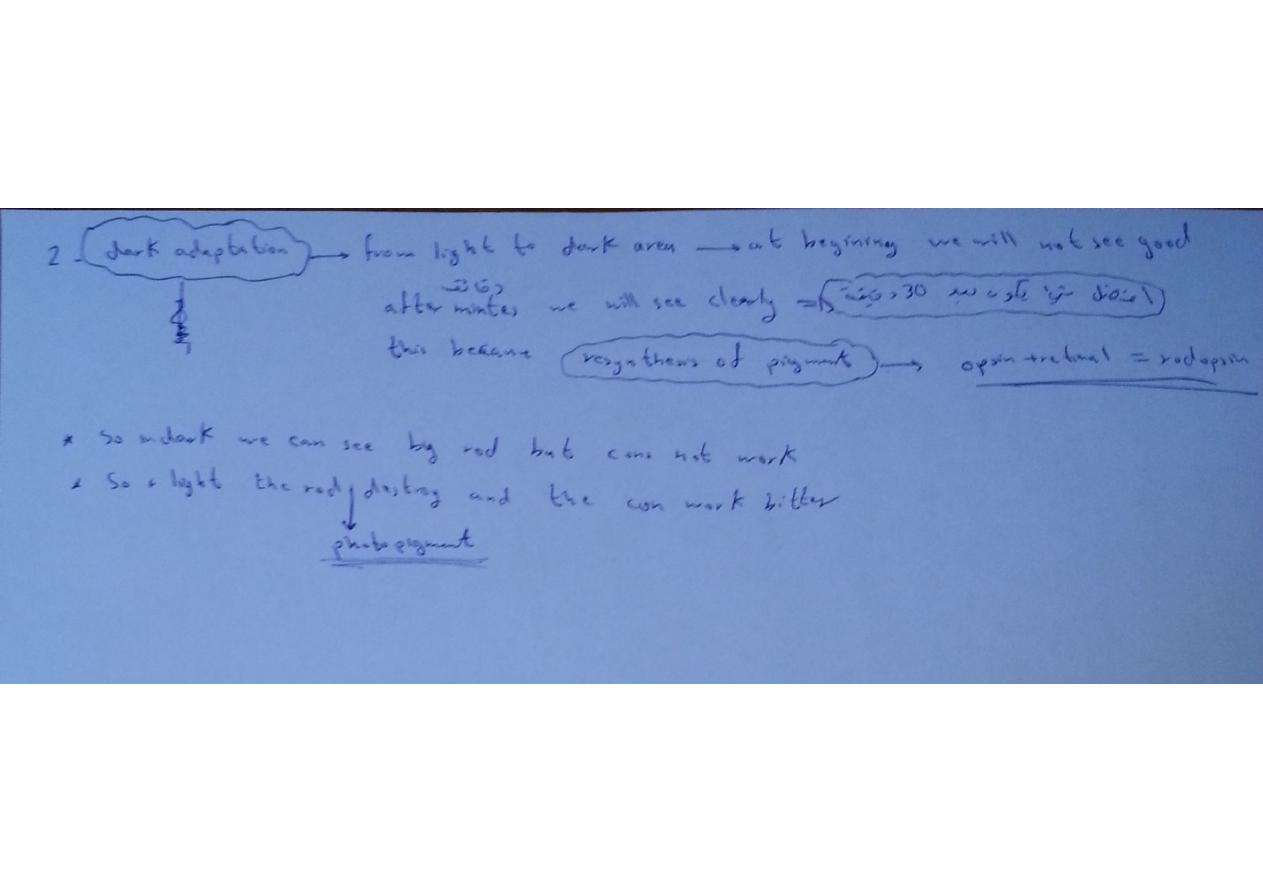 2- dark adaptation → from light to dark area → at begining we will not see good
دقائق
after mintes we will see clearly ⇒ افضل شيء يكون بعد 30 دقيقة
this because resynthesis of pigment → opsin + retinal = rodopsin
* So in dark we can see by rod but cons not work
* So light the rod destroy and the con work bitter
photo pigment